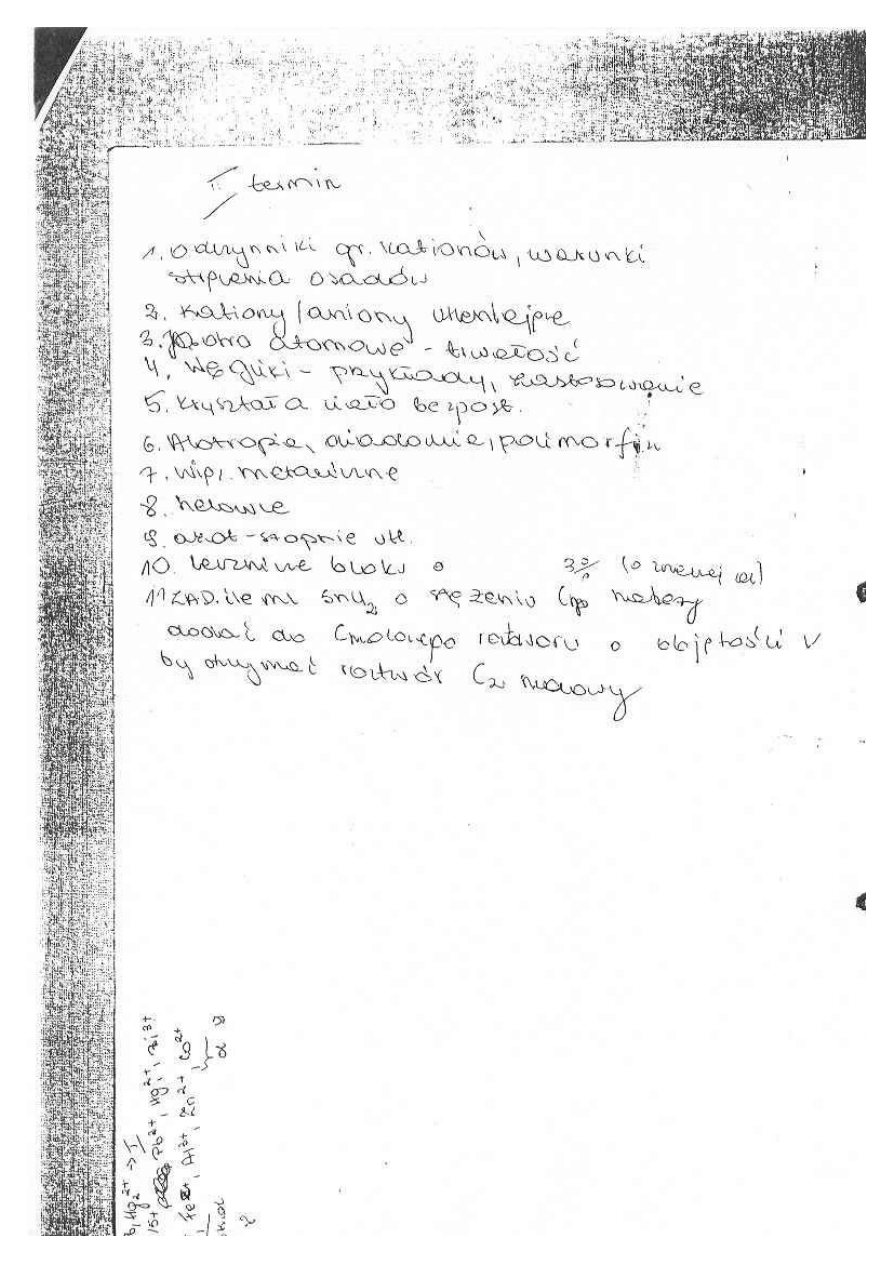 termin
1. Odczynniki gr. kationów, warunki
strącenia osadów
2. Kationy/aniony utleniające
3. Jądro atomowe - trwałość
4. Węgliki - przykłady, zastosowanie
5. Kryształ a ciało bezpost.
6. Alotropia, diadochia, polimorfizm
7. metaliczne
8. helowce
9. azot - stopnie utl.
10. bloku o (o innej
11 ZAD. ile ml SnCl2 o stężeniu Cp należy
dodać do Cmolowego roztworu o objętości V
by otrzymać roztwór C2 molowy
Hg2 2+ → I
Pb2+, Hg2+, Bi3+
Fe2+, Al3+, Zn2+, Co2+